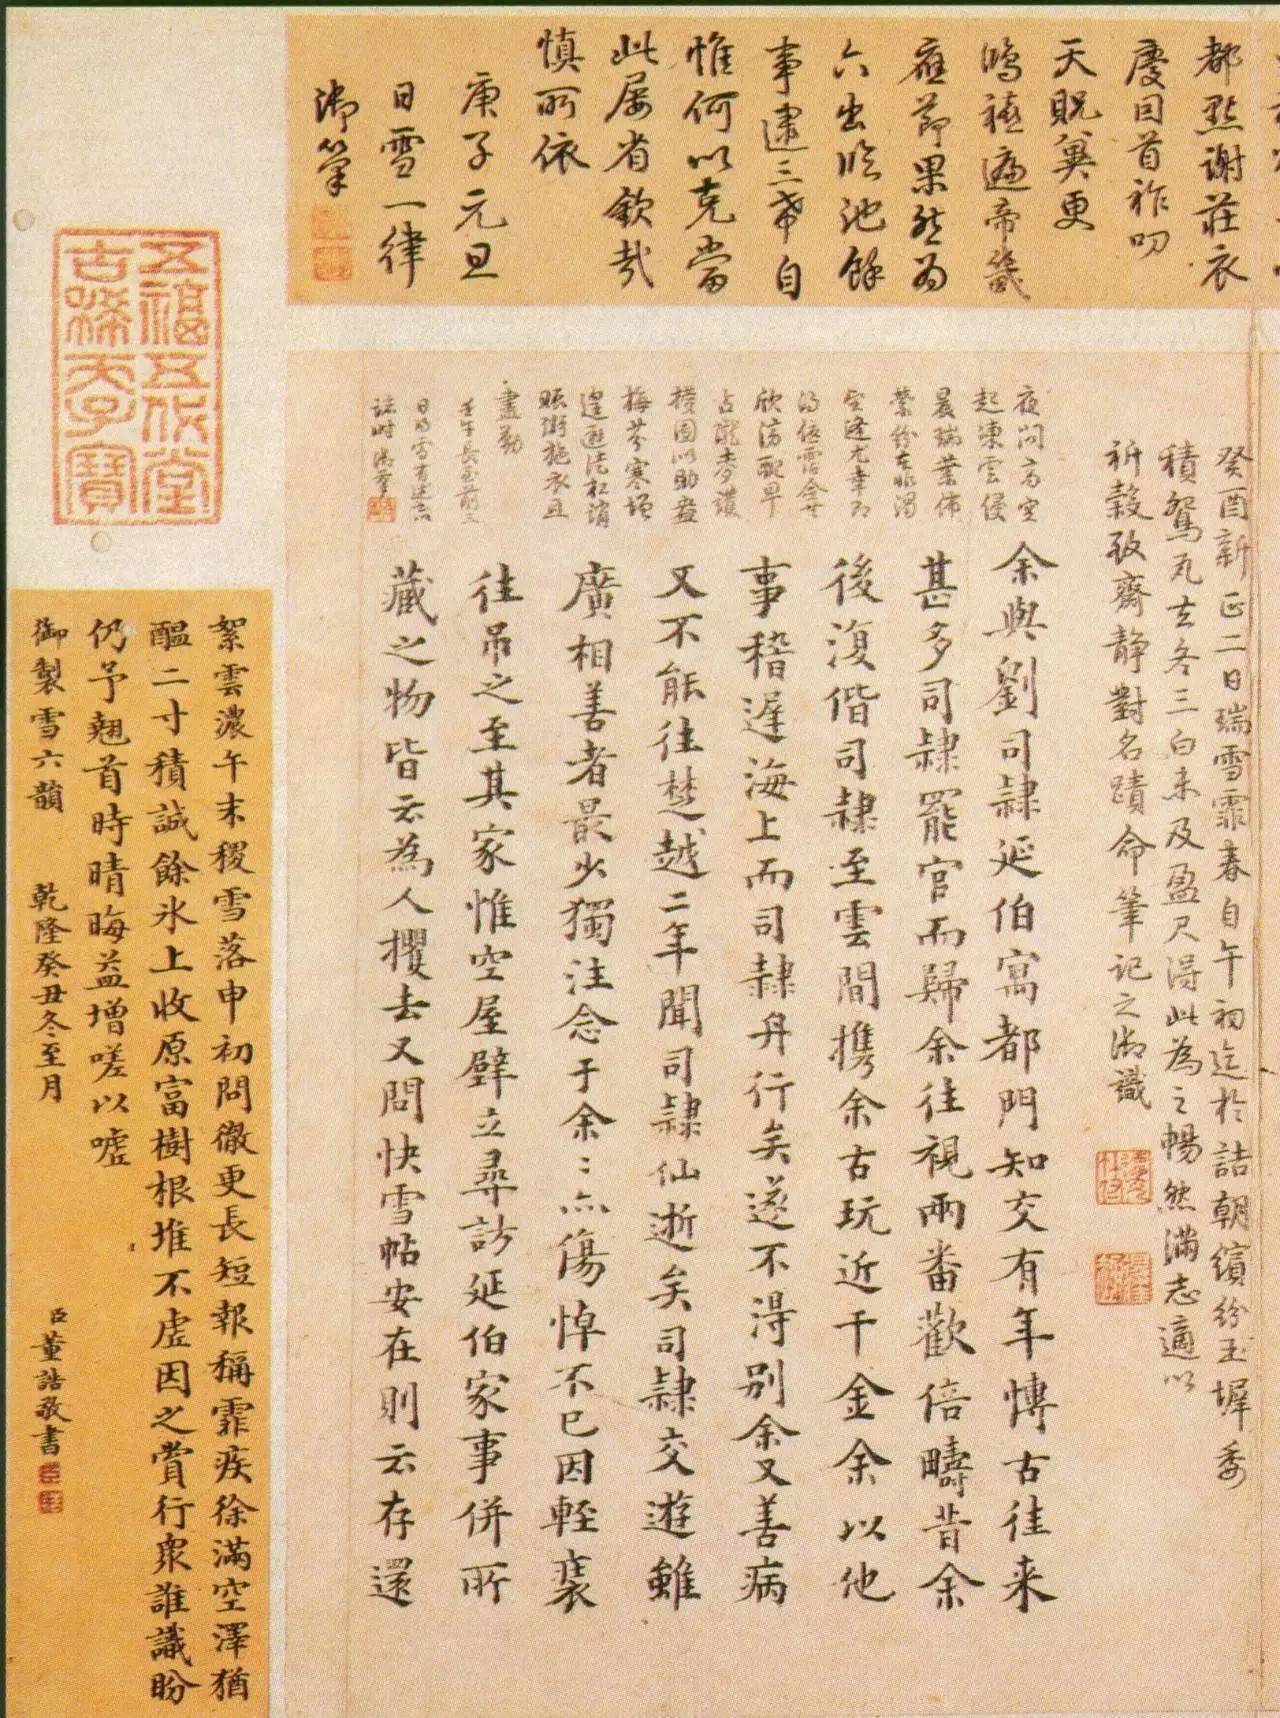 都點謝莊衣
慶因首祚叨
天貺冀更
鴻禧遍帝畿
應節果然為
六出臨池餘
事逮三希自
惟何以克當
此屢省欽哉
慎所依
庚子元旦
日雪一律
御筆
癸酉新正二日瑞雪霏春自午初迄於詰朝繽紛玉墀委
積鴛瓦去冬三白未及盈尺得此為之暢然滿志適以
祈穀致齋静對名蹟命筆記之御識
夜問高空
起凍雲侵
晨瑞葉佈
縈紛
望逢尤幸即
欣滂配早
占隴麥護
梅芬寒增
賑粥施衣且
盡勤
壬午長至前三
日
誌時御筆
余與劉司隷延伯寓都門知交有年博古往来
甚多司隷罷官而歸余往視兩番歡倍疇昔余
後復偕司隷至雲間攜余古玩近千金余以他
事稽遲海上而司隷舟行矣遂不得別余又善病
又不能往楚越二年聞司隷仙逝矣司隷交遊雖
廣相善者最少獨注念于余〻亦傷悼不已因輕裘
往吊之至其家惟空屋壁立尋訪延伯家事併所
藏之物皆云為人攫去又問快雪帖安在則云存還
五福五代堂
古稀天子寶
絮雲濃午末稷雪落申初問徹更長短報稱霏疾徐滿空澤猶
醖二寸積誠餘氷上收原富樹根堆不虛因之賞行衆誰識盼
仍予翹首時晴晦益增嗟以噓
御製雪六韻 乾隆癸丑冬至月
臣董誥敬書